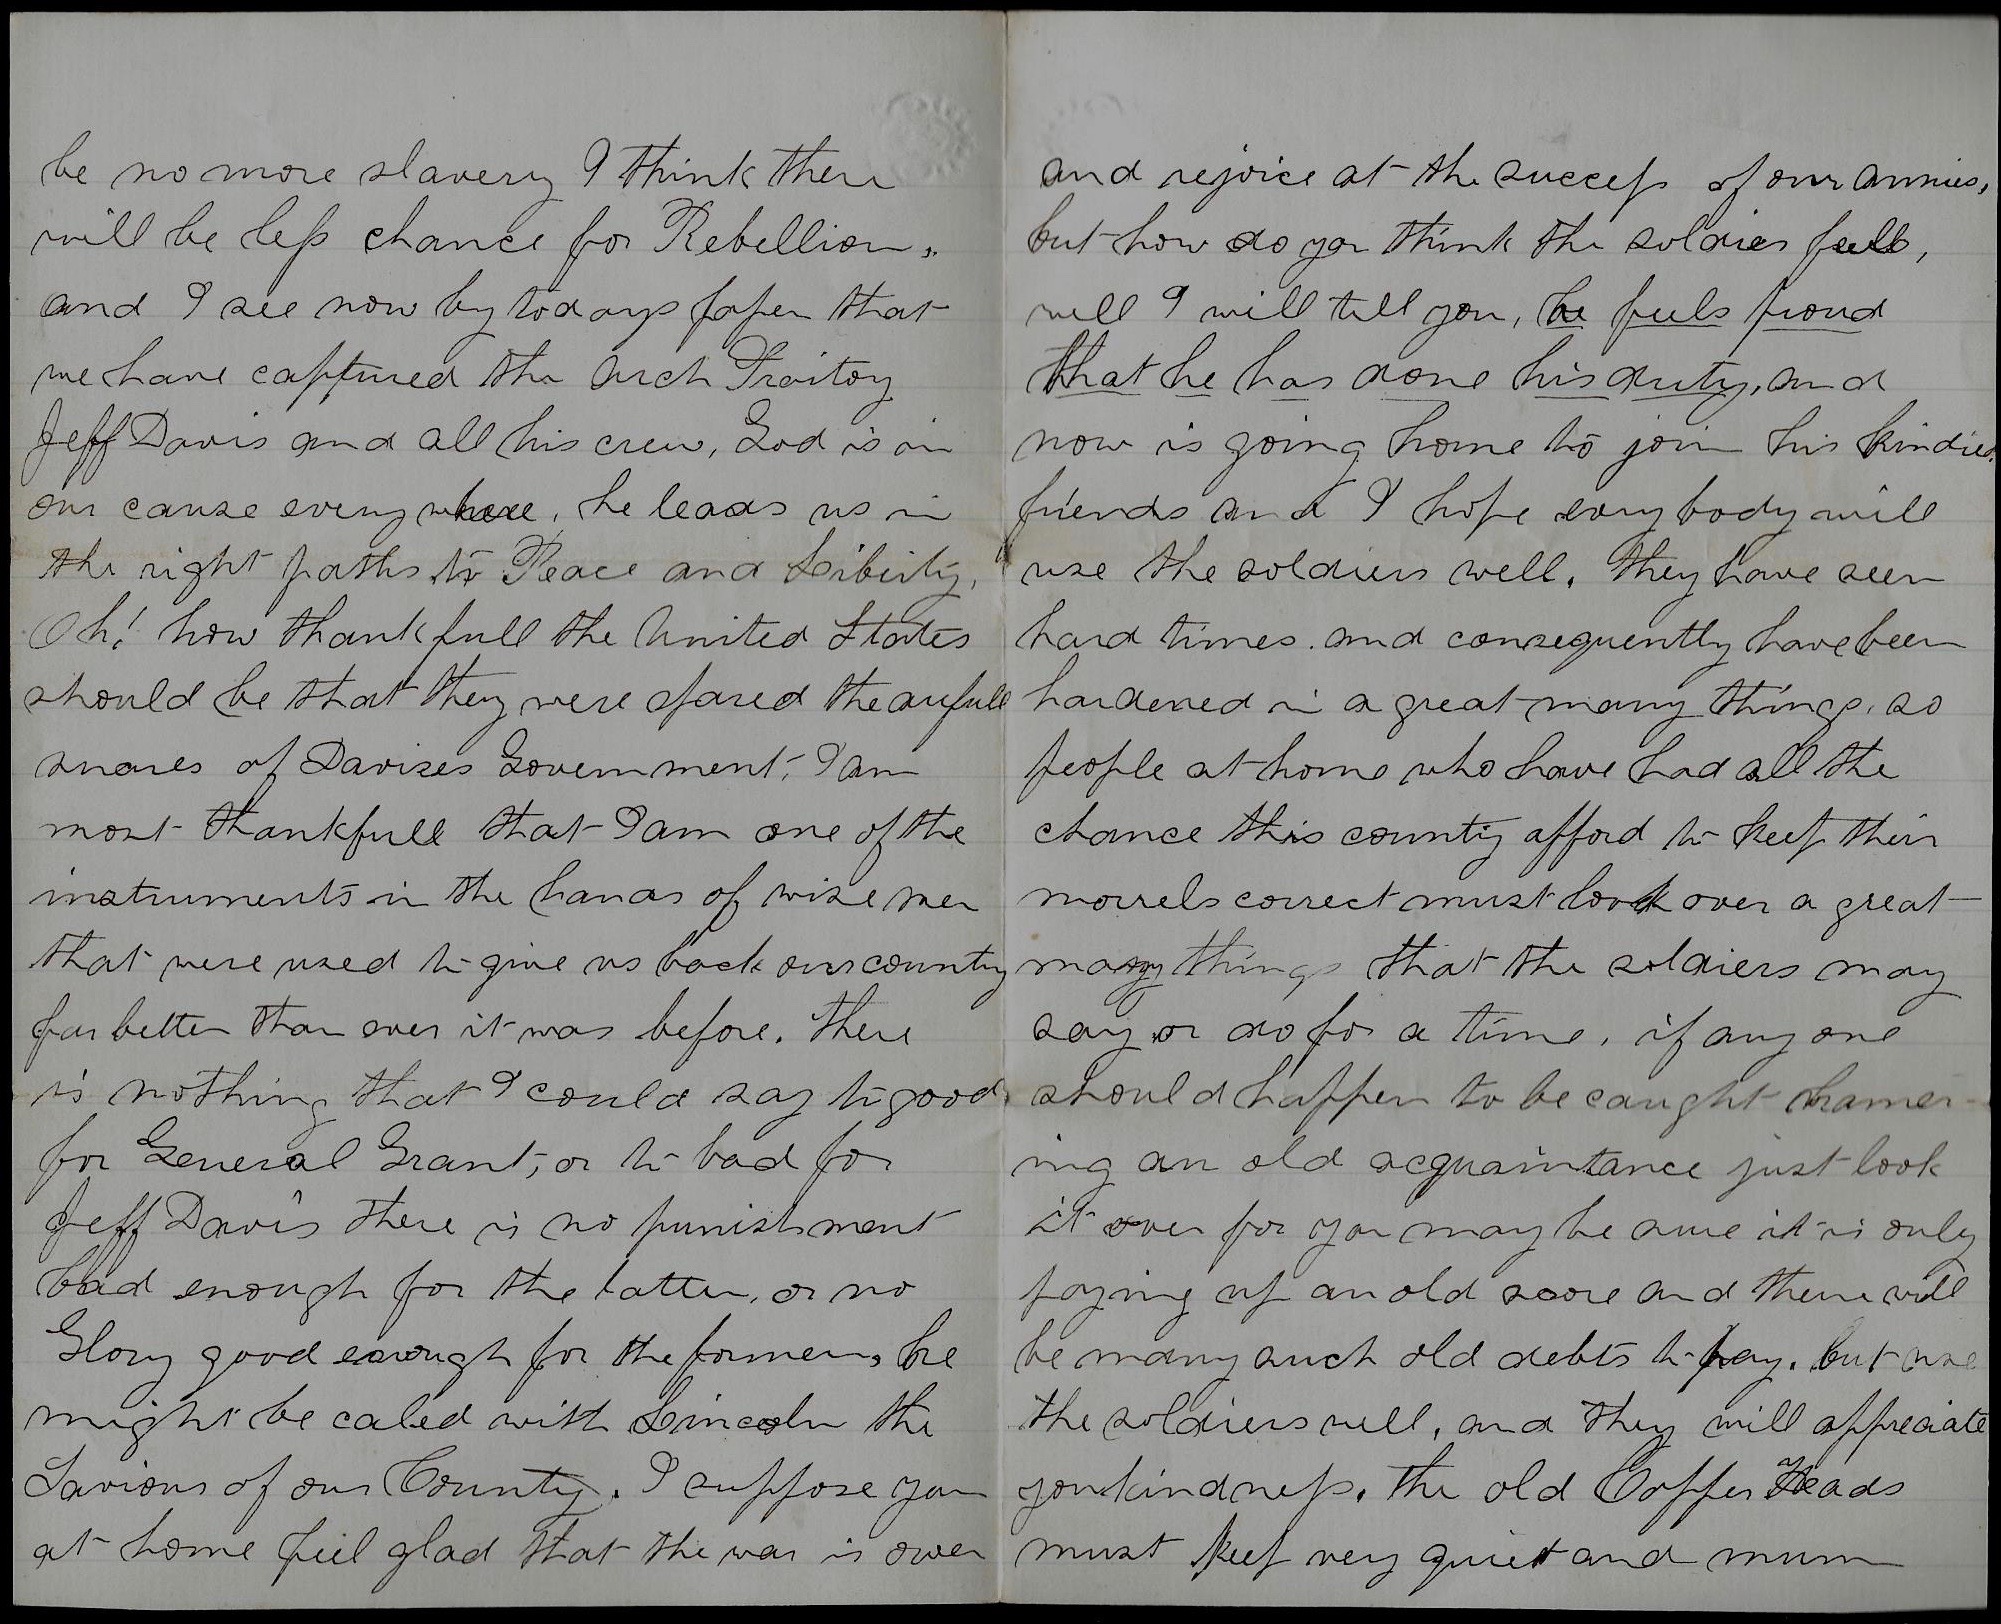 be no more slavery I think there
will be less chance for Rebellion,
and I see now by todays paper that
we have captured the Arch Traitor
Jeff Davis and all his crew, God is in
our cause everywhere, he leads us in
the right paths to Peace and Liberty,
Oh! how thankfull the United States
should be that they were spared the awfull
snares of Davises Government, I am
most thankfull that I am one of the
instruments in the hands of wise men
that were used to give us back our country
far better than ever it was before. there
is nothing that I could say to good
for General Grant, or to bad for
Jeff Davis there is no punishment
bad enough for the latter, or no
Glory good enough for the former, he
might be caled with Lincoln the
Saviours of our County. I suppose you
at home feel glad that the war is over
and rejoice at the success of our armies,
but how do you think the soldier feels,
well I will tell you, he feels proud
that he has done his duty, and
now is going home to join his kindred
friends and I hope every body will
use the soldiers well. they have seen
hard times. and consequently have been
hardened in a great many things, so
people at home who have had all the
chance this county afford to keep their
morrels correct must look over a great
many things that the soldiers may
say or do for a time. if any one
should happen to be caught hamer-
ing an old acquaintance just look
it over for you may be sure it is only
paying up an old score and there will
be many such old debts to pay. but use
the soldiers well, and they will appreciate
your kindness. the old Copper Heads
must keep very quiet and mum